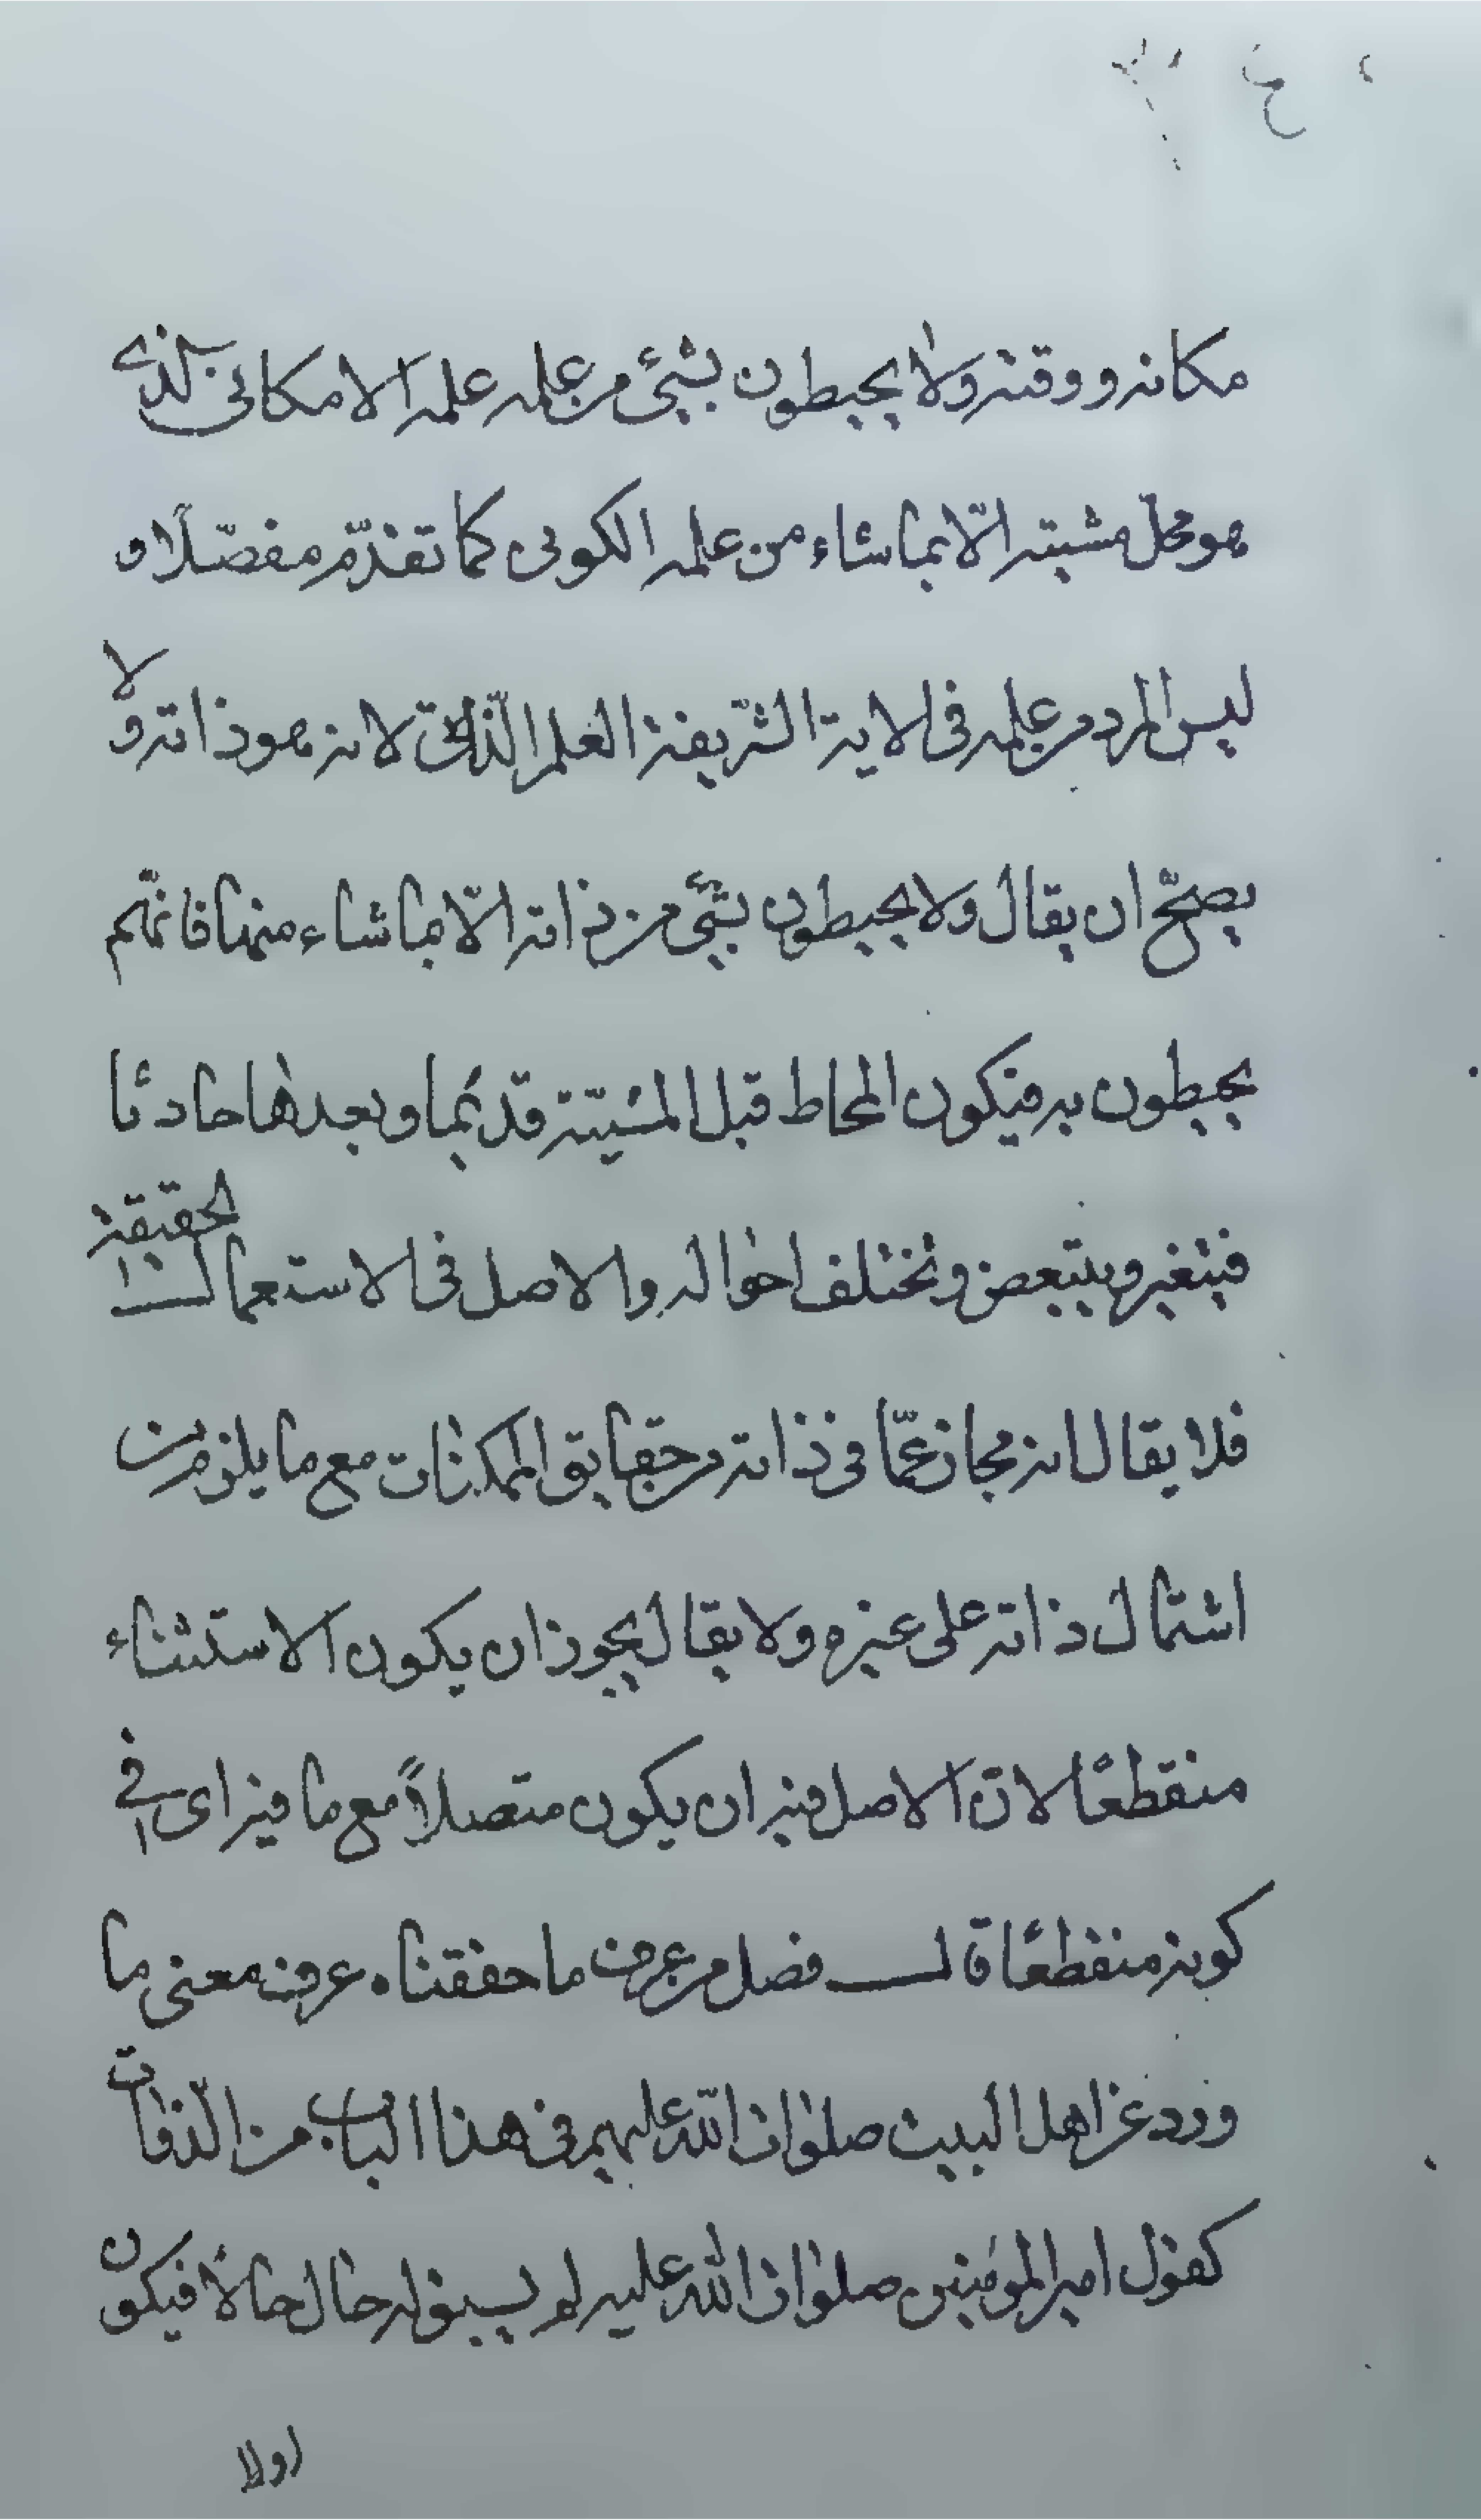 مكانه ووقته ولا يحيطون بشئ من علمه علمه الامكانى الذى
هو محل مشيته الّا بما شاء من علمه الكونى كما تقدّم مفصّلًا و
ليس المراد من علمه فى الاية الشّريفة العلم الذّاتى لانه هو ذاته ولا
يصحّ ان يقال ولا يحيطون بشئ من ذاته الّا بما شاء منها فانّهم
يحيطون به فيكون المحاط قبل المشيّة قديما وبعدها حادثا
فيتغير ويتبعض وتختلف احواله والاصل فى الاستعمال الحقيقة
فلا يقال انه مجاز عمّا فى ذاته من حقايق الممكنات مع ما يلزم من
اشتمال ذاته على غيره ولا يقال يجوز ان يكون الاستثناء
منقطعًا لانّ الاصل فيه ان يكون متصلاً مع ما فيه اى فى
كونه منقطعًا قال فصل من عرف ما حققناه عرف معنى ما
ورد عن اهل البيت صلوات الله عليهم فى هذا الباب من الروايات
كقول امير المؤمنين صلوات الله عليه لم يسبق له حال حالًا فيكون
اولا